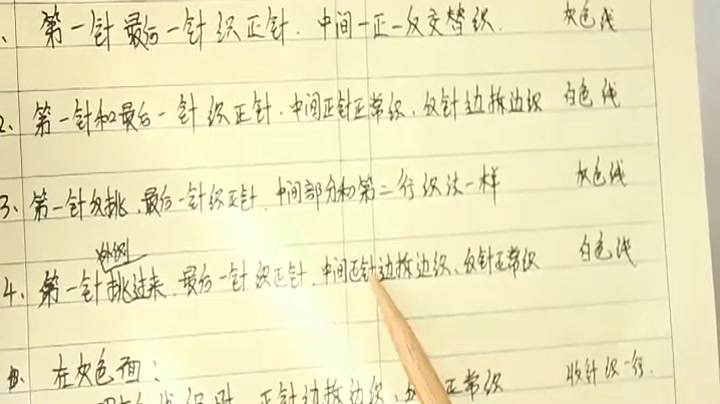 、第一针最后一针织正针.中间一正一反交替织. 灰色线
2、第一针和最后一针织正针.中间正针正常织、反针边拆边织 白色线
3、第一针反挑、最后一针织正针.中间部分和第二行织法一样 灰色线
外侧
4、第一针挑过来.最后一针织正针.中间正针边拆边织、反针正常织 白色线
在灰色面:
织时 正针边拆边织、 正常织 收针织一行.